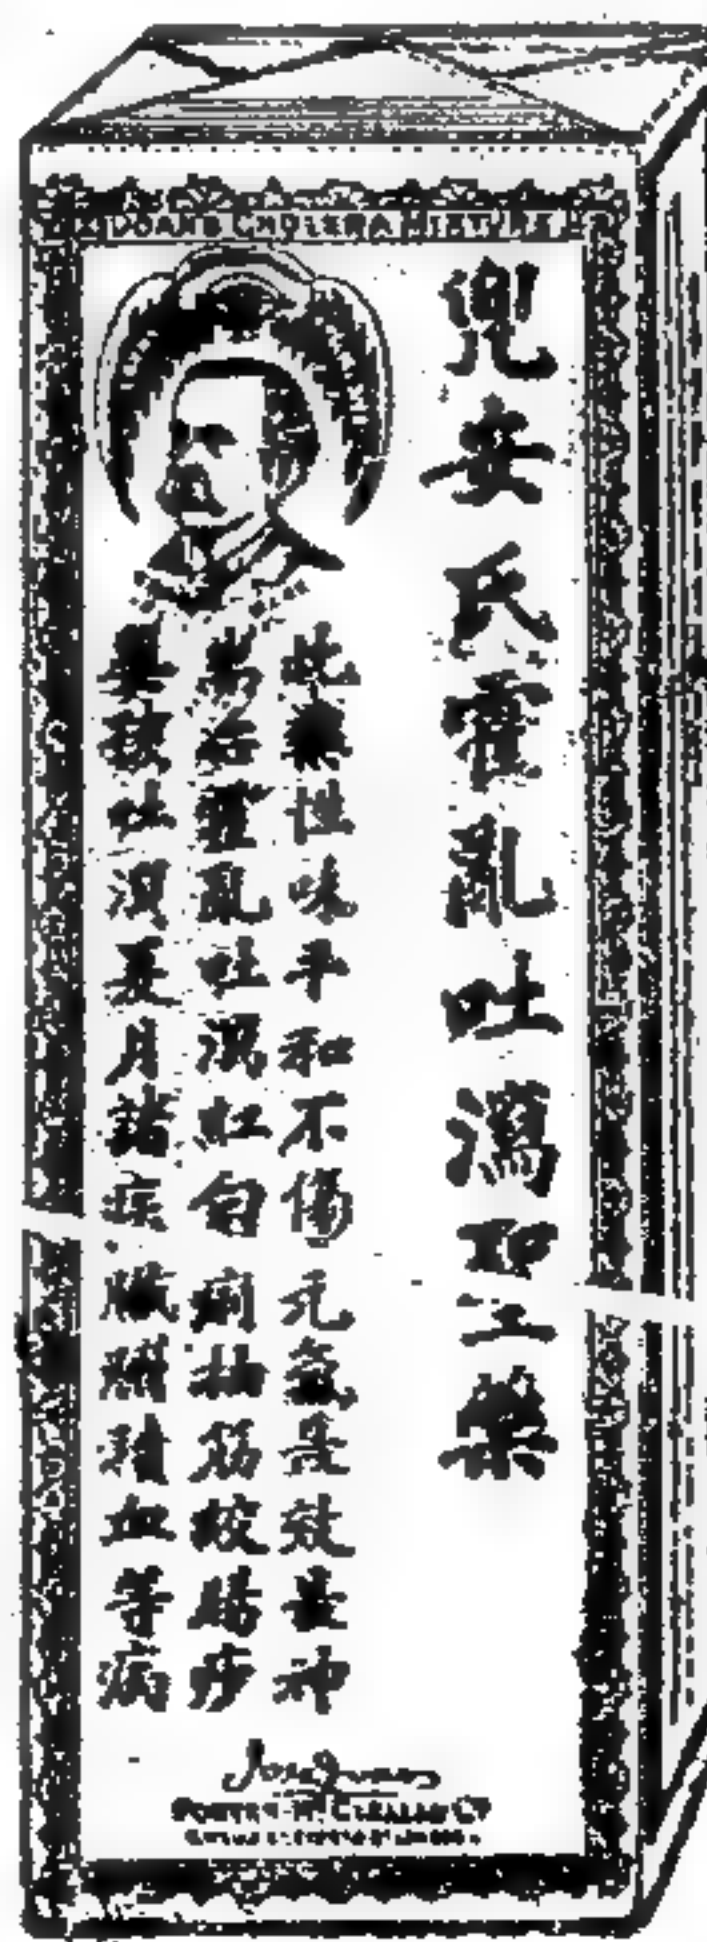 DOAN'S CHOLERA MIXTURE
兜安氏霍亂吐瀉聖藥
此藥性味平和不傷元氣是效最神
治霍亂吐瀉紅白痢抽筋絞腸痧
吐瀉夏月諸疾臟腑積血等病
FOSTER-McCLELLAN Cº